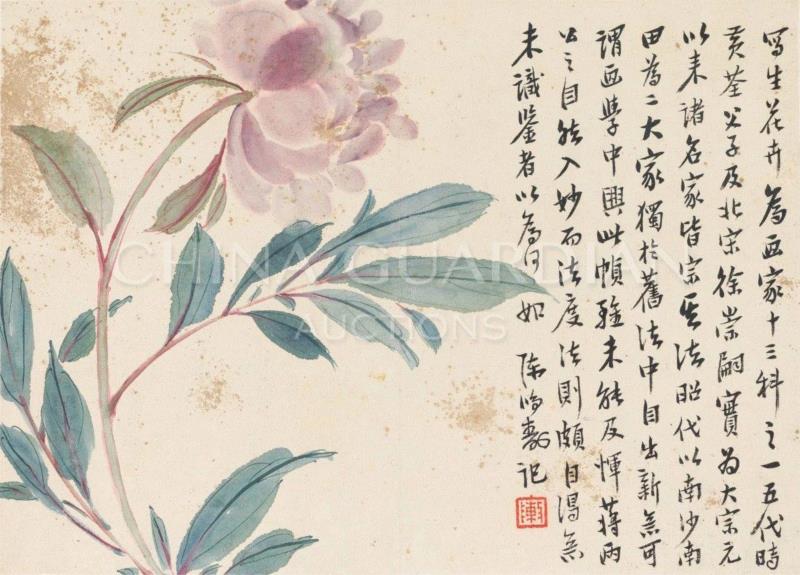 寫生花卉為画家十三科之一五代時
黃荃父子及北宋徐崇嗣實为大宗元
以来諸名家皆宗其法昭代以南沙南
田為二大家獨於舊法中自出新意可
謂画學中興此幀雖未能及惲蔣兩
公之自然入妙而法度法則頗自得矣
未識鑒者以為何如 陈鸿壽記
CHINA GUARDIAN
AUCTIONS